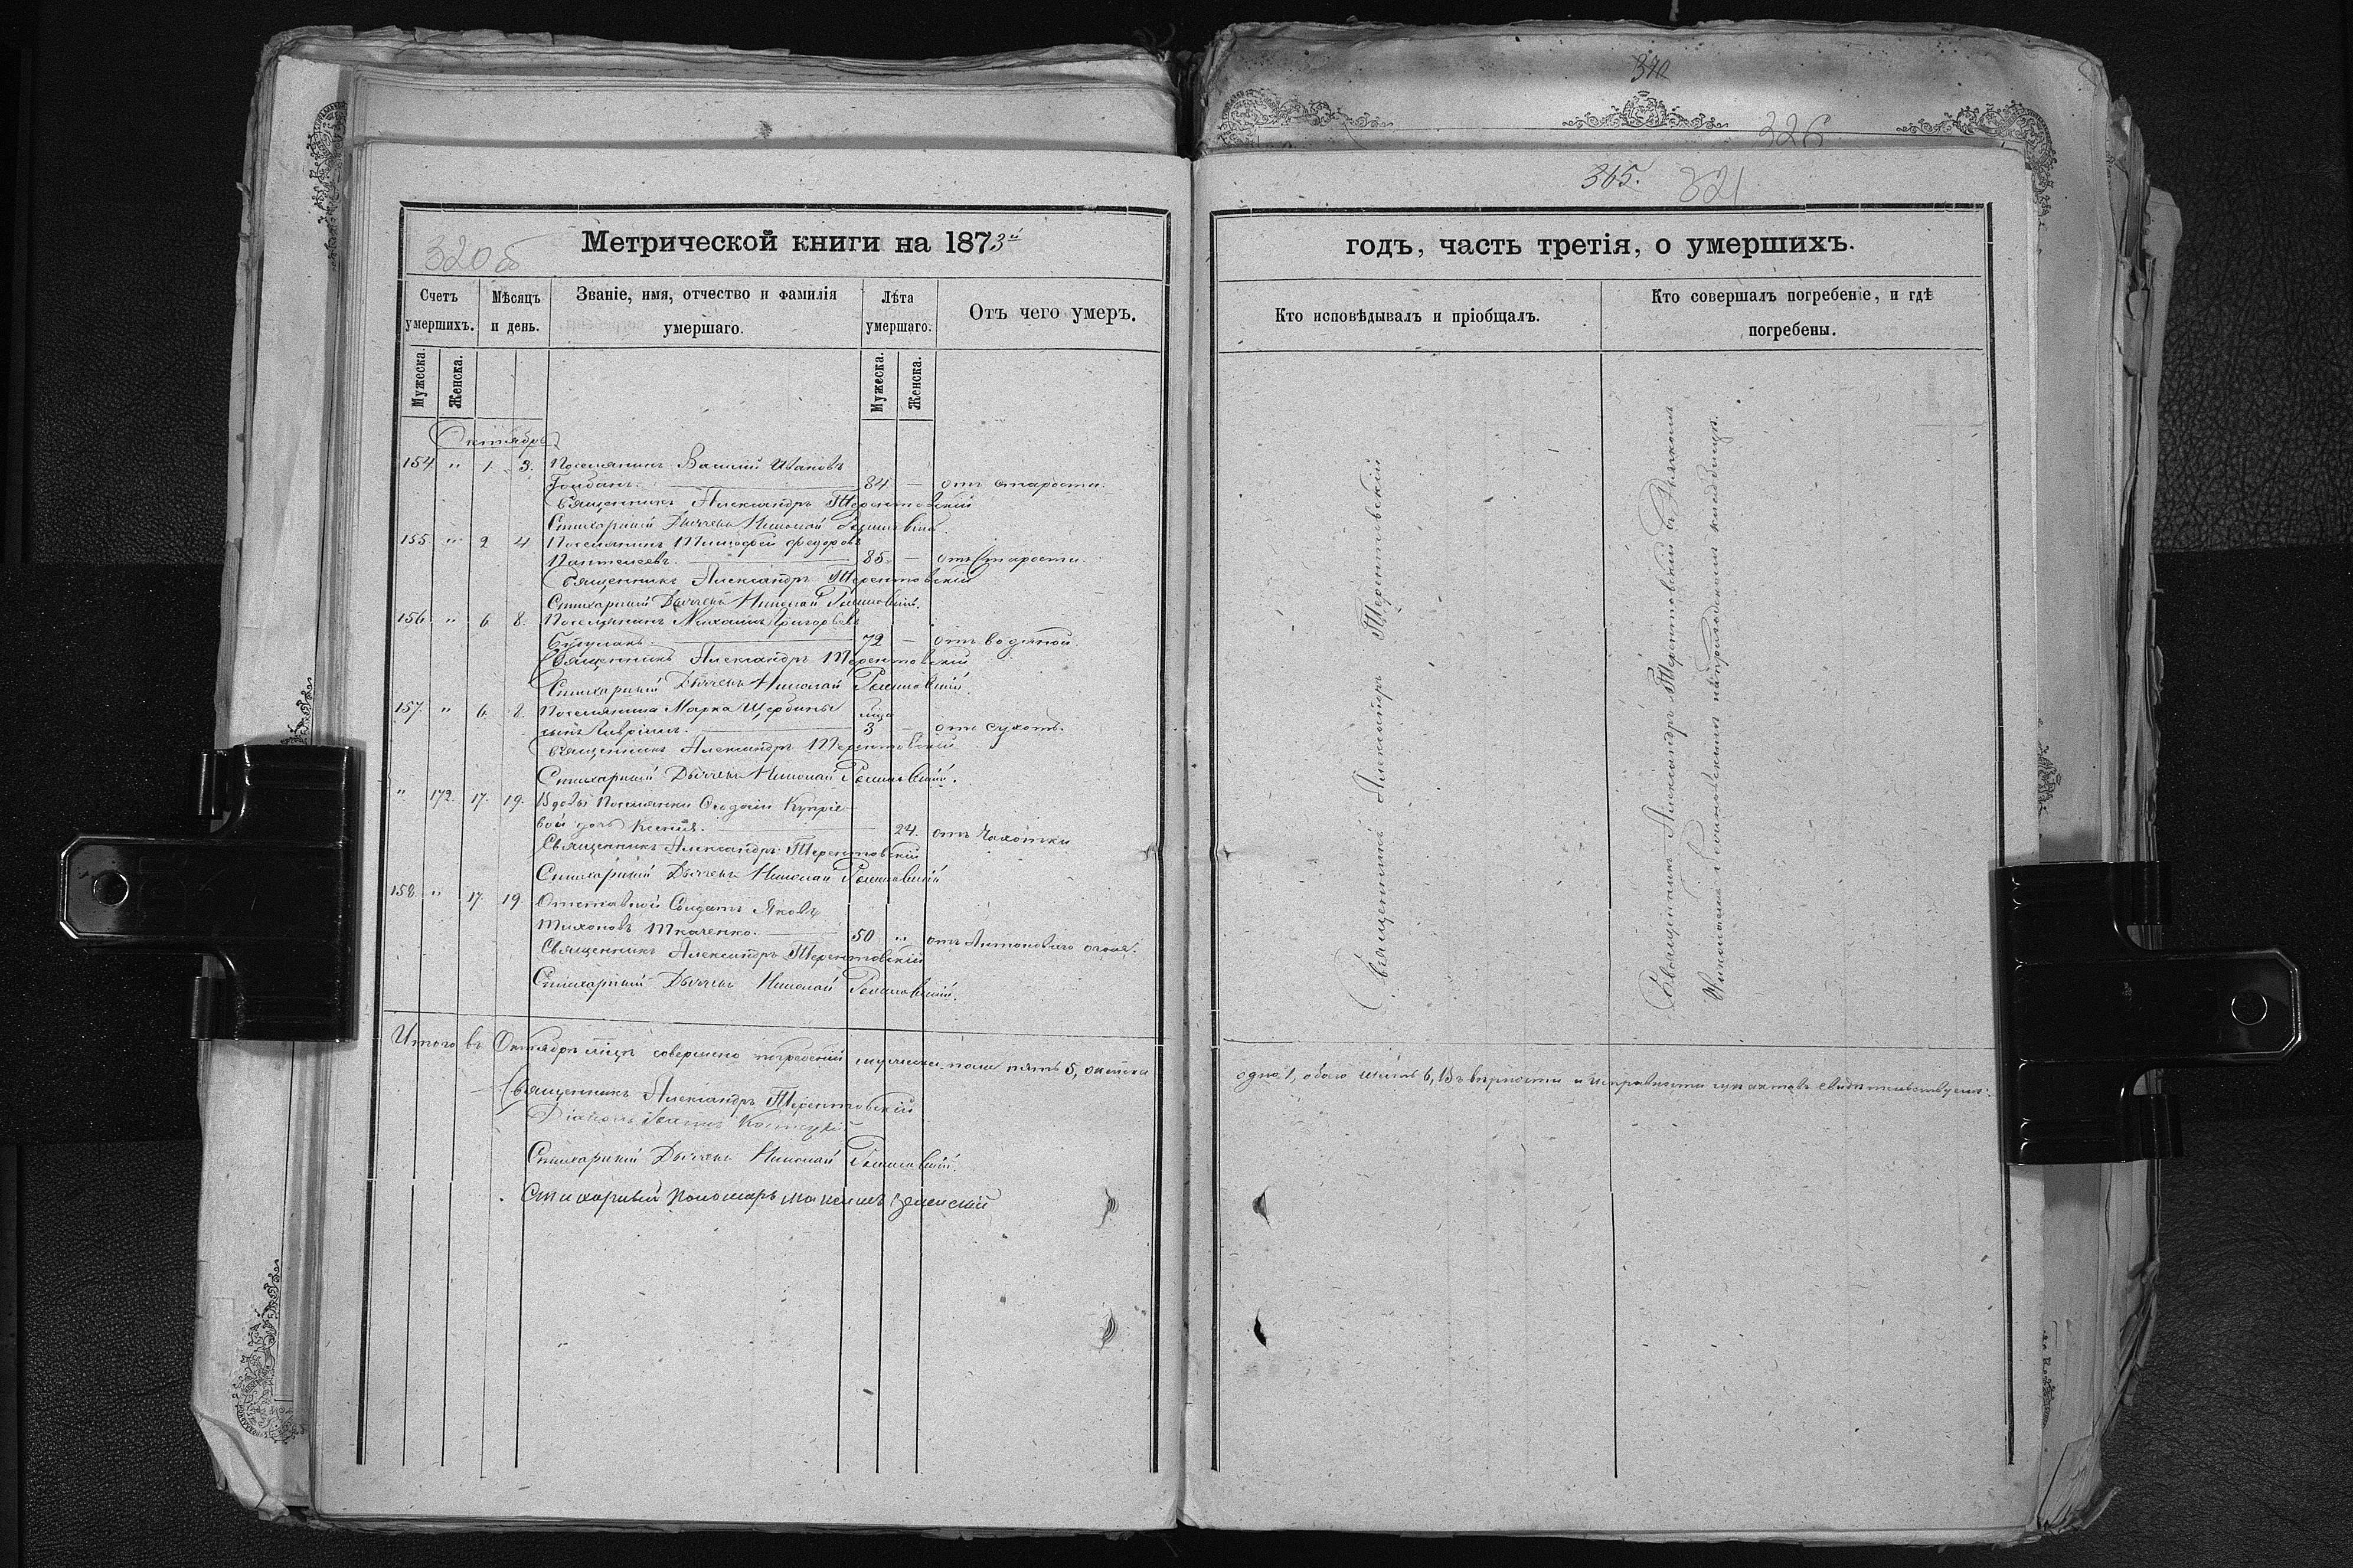 370
326
365. 321
320б
Метрической книги на 1873й
годъ, часть третія, о умершихъ.
Счетъ умершихъ.
Мѣсяцъ и день.
Званіе, имя, отчество и фамилія умершаго.
Лѣта умершаго.
Отъ чего умеръ.
Кто исповѣдывалъ и пріобщалъ.
Кто совершалъ погребеніе, и гдѣ погребены.
Мужеска.
Женска.
Мужеска.
Женска.
Октябрь
154. " 1. 3. Поселянинъ Василій Ивановъ
84 — отъ старости.
Священникъ Александръ Терентовскій
Стихарный Дьячекъ Николай
155 " 2 4 Поселянинъ Тимофей Федоровъ
Пантелеевъ. 85 — отъ Старости.
Священникъ Александръ Терентовскій
Стихарный Дьячекъ Николай
156. " 6 8. Поселянинъ Михаилъ Григорьевъ
72 — отъ водяной.
Священникъ Александръ Терентовскій
Стихарный Дьячекъ Николай
157. " 6. 8. Поселянина Марка Щербины
сынъ Гавріилъ. 3 — отъ сухотъ.
Священникъ Александръ Терентовскій
Стихарный Дьячекъ Николай
" 172. 17. 19. Вдовы Поселянки Купріе-
вой дочь Ксенія. 24. отъ Чахотки
Священникъ Александръ Терентовскій
Стихарный Дьячекъ Николай
158. " 17. 19. Отставной Солдатъ Яковъ
Тихоновъ Ткаченко. 50 " отъ Антонового огоня.
Священникъ Александръ Терентовскій
Стихарный Дьячекъ Николай
Священникъ Александръ Терентовскій
Священникъ Александръ Терентовскій съ
кладбищѣ.
Итого въ Октябрѣ м-цѣ совершено погребеній мужеска пола пять 5, женска
одно 1, обоего шесть 6, Въ вѣрности и исправности сихъ актовъ свидѣтельствуемъ:
Священникъ Александръ Терентовскій
Діаконъ
Стихарный Дьячекъ Николай
Стихарный Пономарь